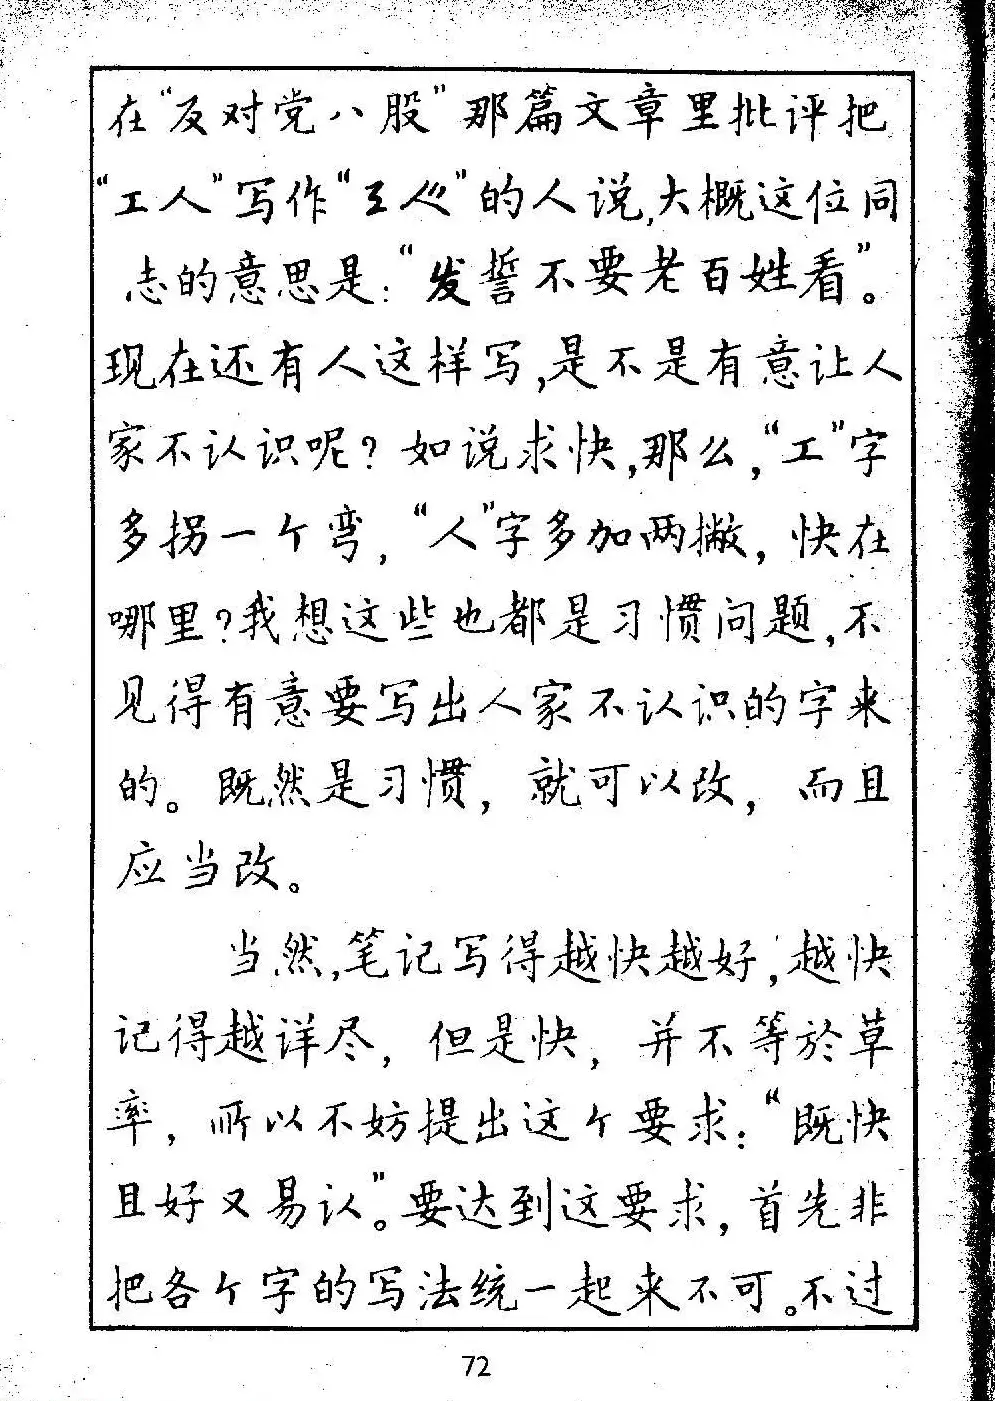 在“反对党八股”那篇文章里批评把
“工人”写作“𢒄人彡”的人说，大概这位同
志的意思是：“发誓不要老百姓看”。
现在还有人这样写，是不是有意让人
家不认识呢？如说求快，那么，“工”字
多拐一个弯，“人”字多加两撇，快在
哪里？我想这些也都是习惯问题，不
见得有意要写出人家不认识的字来
的。既然是习惯，就可以改，而且
应当改。
当然，笔记写得越快越好，越快
记得越详尽，但是快，并不等於草
率，所以不妨提出这个要求：“既快
且好又易认”。要达到这要求，首先非
把各个字的写法统一起来不可。不过
72